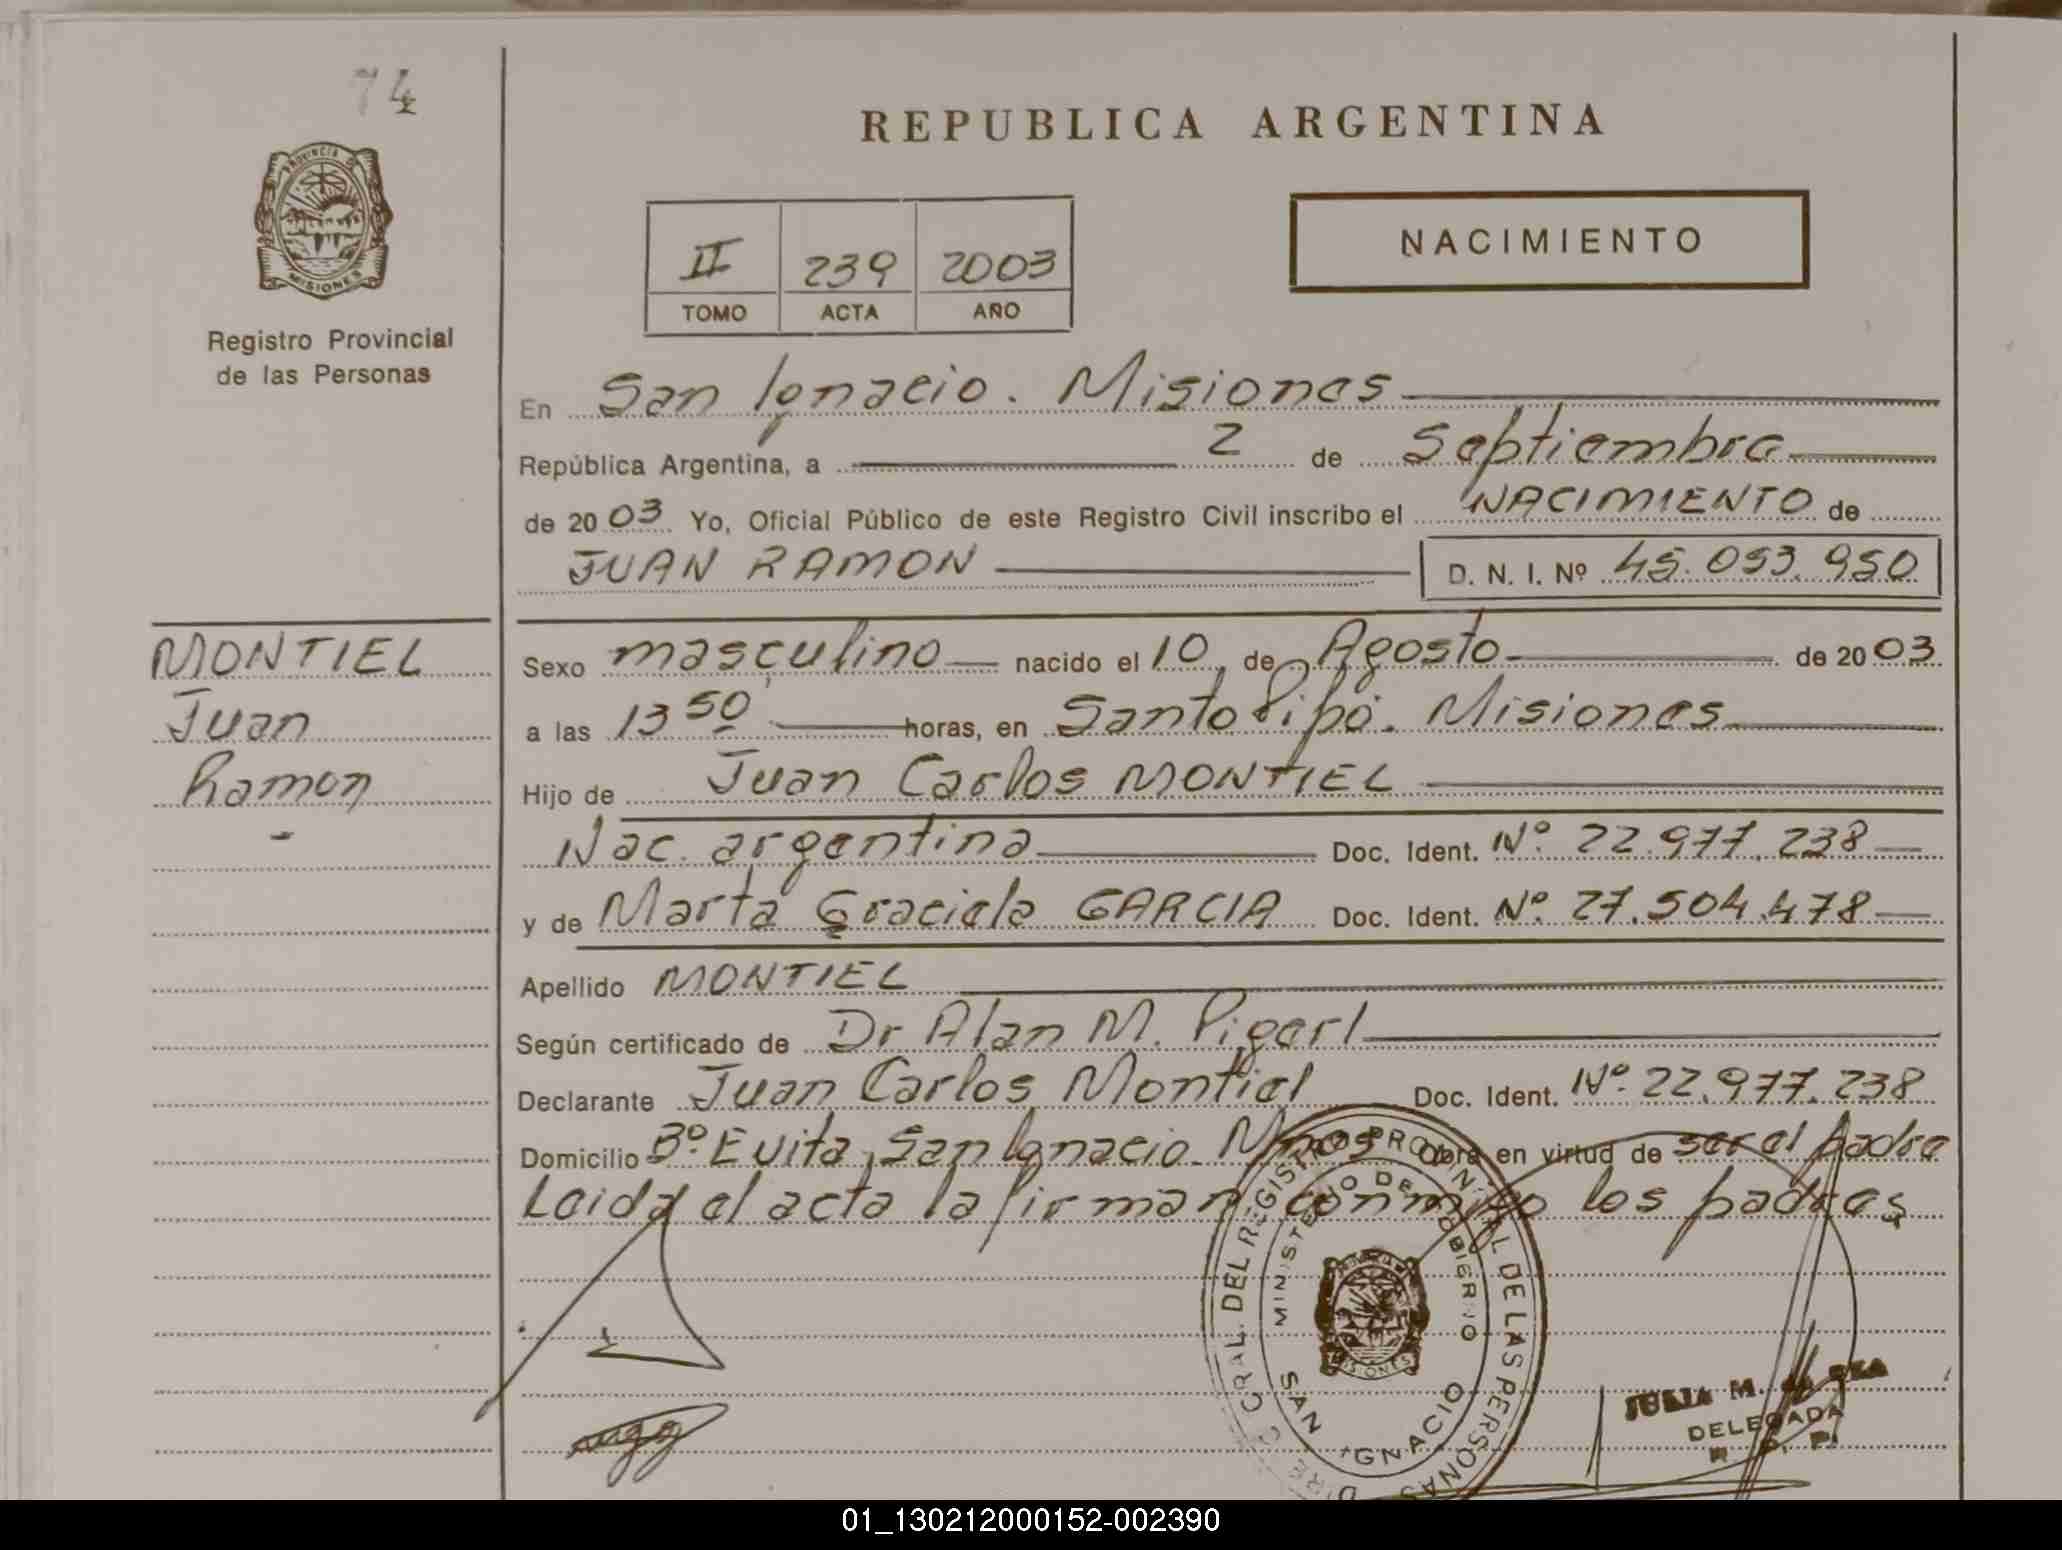 74
REPUBLICA ARGENTINA
PROVINCIA DE
MISIONES
Registro Provincial
de las Personas
II 239 2003
TOMO ACTA AÑO
NACIMIENTO
En San Ignacio. Misiones
República Argentina, a 2 de Septiembre
de 2003 Yo, Oficial Público de este Registro Civil inscribo el NACIMIENTO de
JUAN RAMON D. N. I. Nº 45.053.950
MONTIEL
Juan
Ramon
Sexo masculino nacido el 10 de Agosto de 2003
a las 13 50 horas, en Santo Pipó. Misiones
Hijo de Juan Carlos MONTIEL
Nac. argentina Doc. Ident. Nº 22.977.238
y de Marta Graciela GARCIA Doc. Ident. Nº 27.504.478
Apellido MONTIEL
Según certificado de Dr Alan M. Pigerl
Declarante Juan Carlos Montiel Doc. Ident. Nº 22.977.238
Domicilio Bº Evita, San Ignacio. Mnes Obra en virtud de ser el padre
Leida el acta la firman conmigo los padres
DEL REGISTRO PROVINCIAL DE LAS PERSONAS
MINISTERIO DE GOBIERNO
SAN IGNACIO
MISIONES
JULIA M.
DELEGADA
01_130212000152-002390